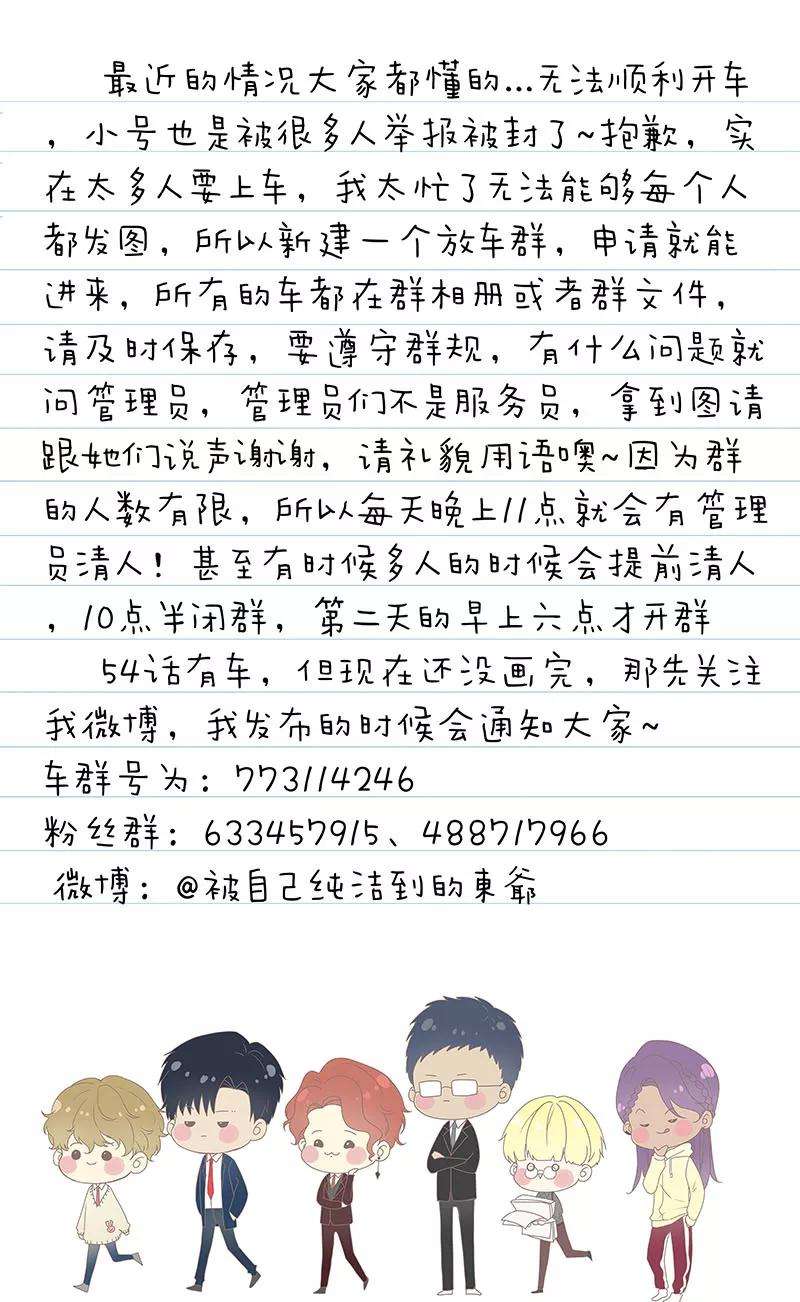 最近的情况大家都懂的...无法顺利开车
，小号也是被很多人举报被封了~抱歉，实
在太多人要上车，我太忙了无法能够每个人
都发图，所以新建一个放车群，申请就能
进来，所有的车都在群相册或者群文件，
请及时保存，要遵守群规，有什么问题就
问管理员，管理员们不是服务员，拿到图请
跟她们说声谢谢，请礼貌用语噢~因为群
的人数有限，所以每天晚上11点就会有管理
员清人！甚至有时候多人的时候会提前清人
，10点半闭群，第二天的早上六点才开群
54话有车，但现在还没画完，那先关注
我微博，我发布的时候会通知大家~
车群号为：773114246
粉丝群：633457915、488717966
微博：@被自己纯洁到的東爺